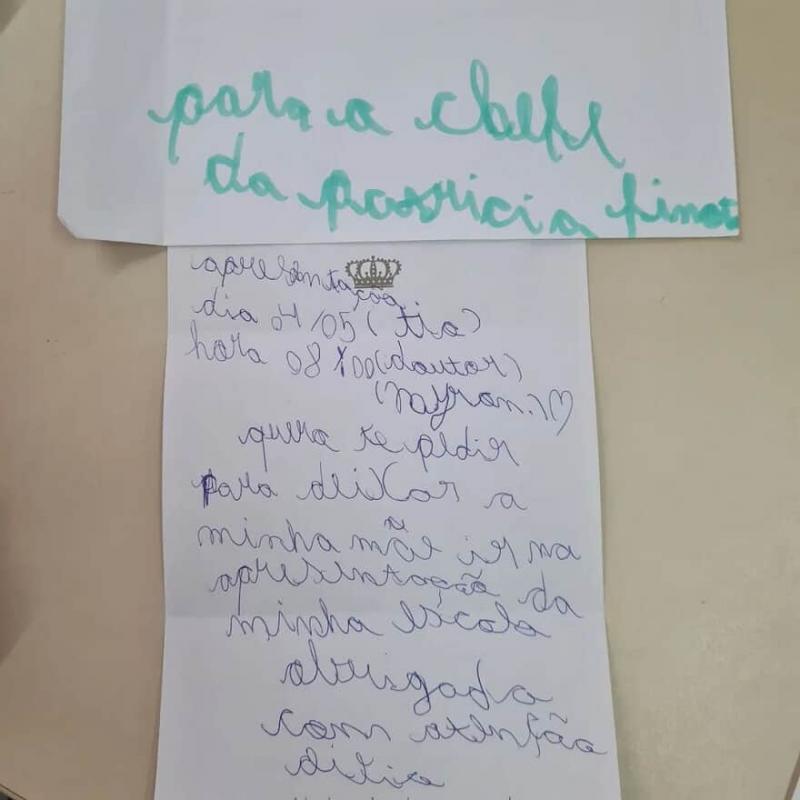 para a chefe
da patricia finot
apresentação
dia 04/05 (tia)
hora 08:00 (doutor)
quera te pedir
para deixar a
minha mãe ir na
apresentação da
minha escola
obrisgada
com atenção